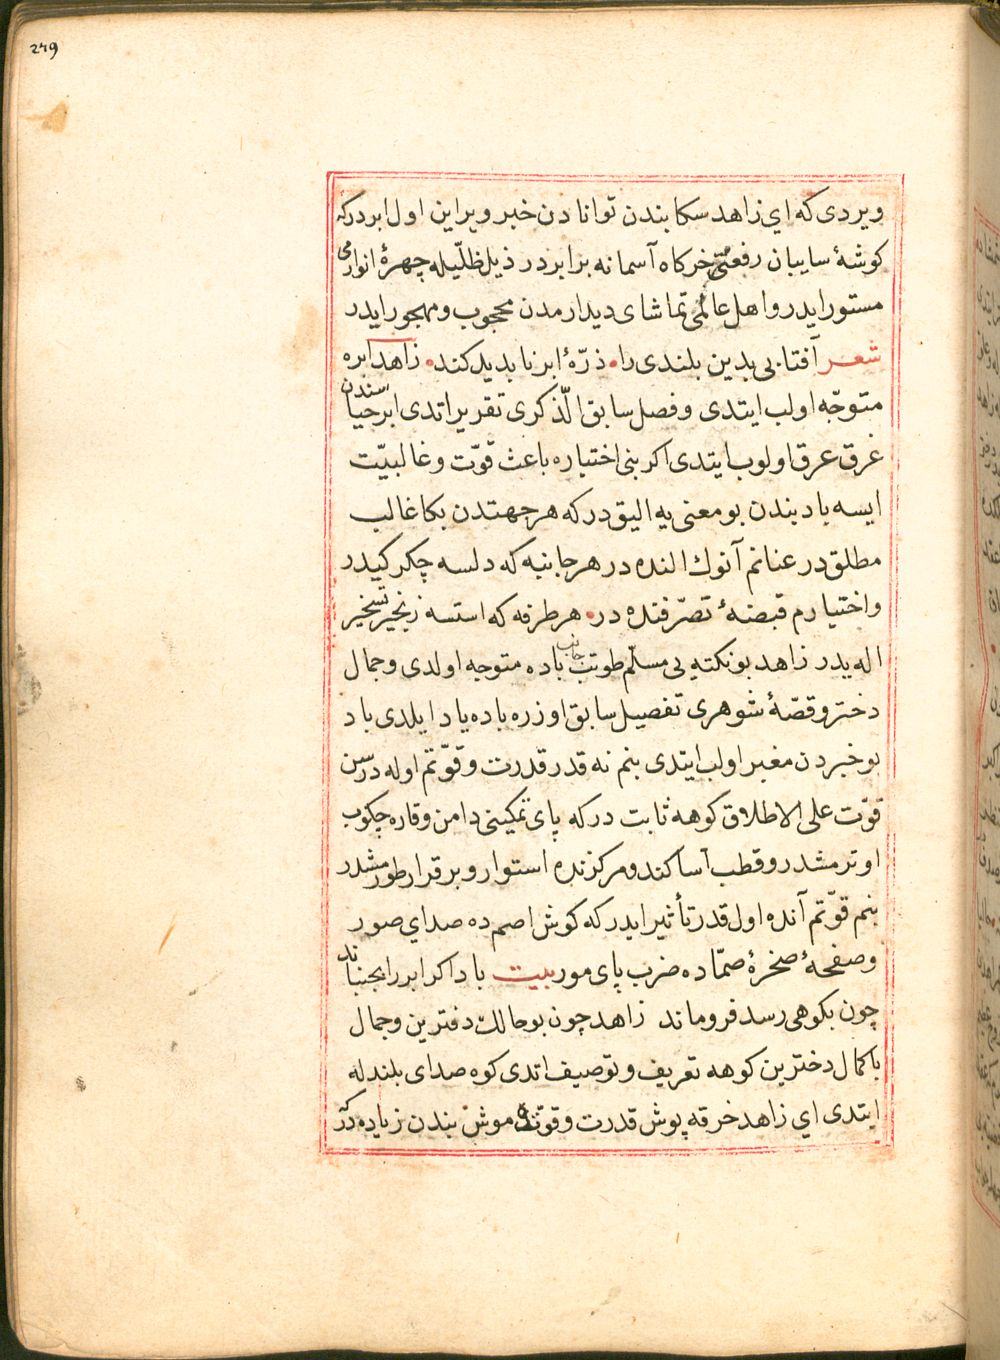 249
ویردی که ای زاهد سکا بندن توانادن خبر ویراین اول ابردرکه
کوشهٔ سایبان رفعتی خرکاه آسمانه برابردر ذیل ظلّیله چهرهٔ انوارمی
مستور ایدر و اهل عالمی تماشای دیدارمدن محجوب و مهجور ایدر
شعر آفتابی بدین بلندی را ذرّهٔ ابر ناپدید کند زاهد ابره
متوجّه اولب ایتدی و فصل سابق الذّکری تقریر اتدی ابر حیاسندن
غرق عرق اولوب ایتدی اکر بنی اختیاره باعث قوّت و غالبیّت
ایسه باد بندن بو معنی یه الیق در که هر جهتدن بکا غالب
مطلق در عنانم آنوك النده در هر جانبه که دلسه چکر کیدر
و اختیارم قبضهٔ تصرّفنده در هر طرفه که استسه زنجیر تسخیر
اله یدر زاهد بو نکته یی مسلّم طوتب جانب باده متوجه اولدی و جمال
دختر و قصّهٔ شوهری تفصیل سابق اوزره باده یاد ایلدی باد
بو خبردن مغبر اولب ایتدی بنم نه قدر قدرت و قوّتم اوله درسن
قوّت علی الاطلاق کوهه ثابت در که پای تمکینی دامن وقاره چکوب
اوترمشدر و قطب آسا کندو مرکزنده استوار و برقرار طورمشدر
بنم قوّتم آنده اول قدر تأثیر ایدر که کوش اصم ده صدای صور
و صفحهٔ صخرهٔ صمّاده ضرب پای مور بیت باد اکر ابر را بجنباند
چون بکوهی رسد فروماند زاهد چون بو حالك دفترین و جمال
باکمال دخترین کوهه تعریف و توصیف اتدی کوه صدای بلندله
ایتدی ای زاهد خرقه پوش قدرت و قوّتده موش بندن زیاده در